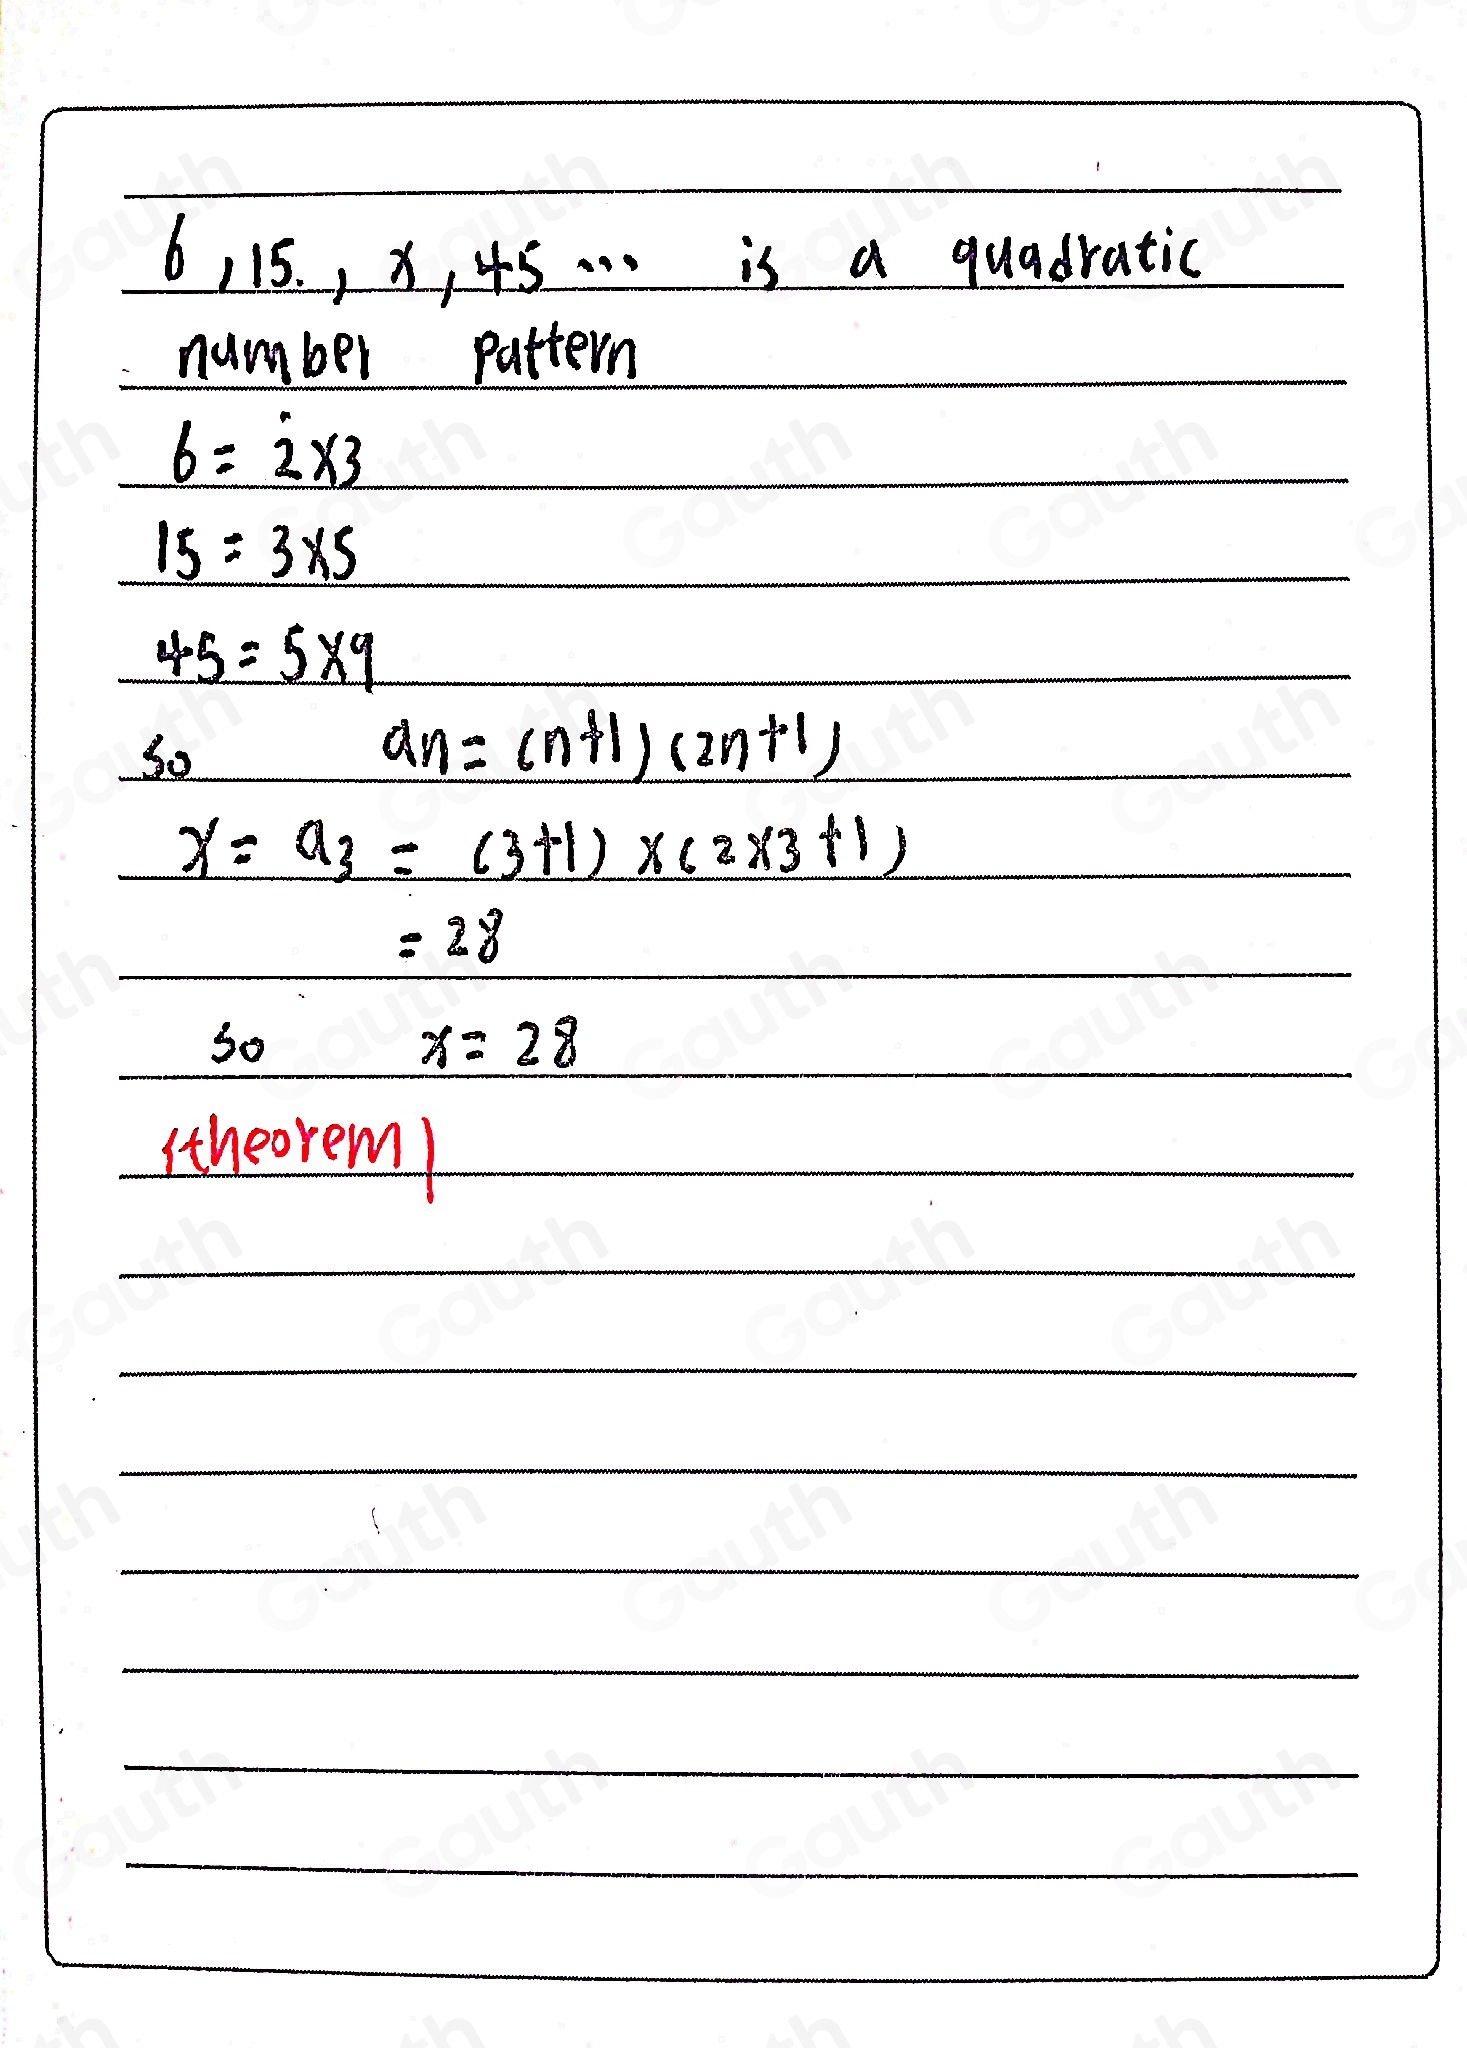 6, 15., x, 45 ... is a quadratic
number pattern
6 = 2×3
15 = 3×5
45 = 5×9
so an = (n+1)(2n+1)
x = a3 = (3+1)×(2×3+1)
= 28
so x = 28
(theorem)
Gauth